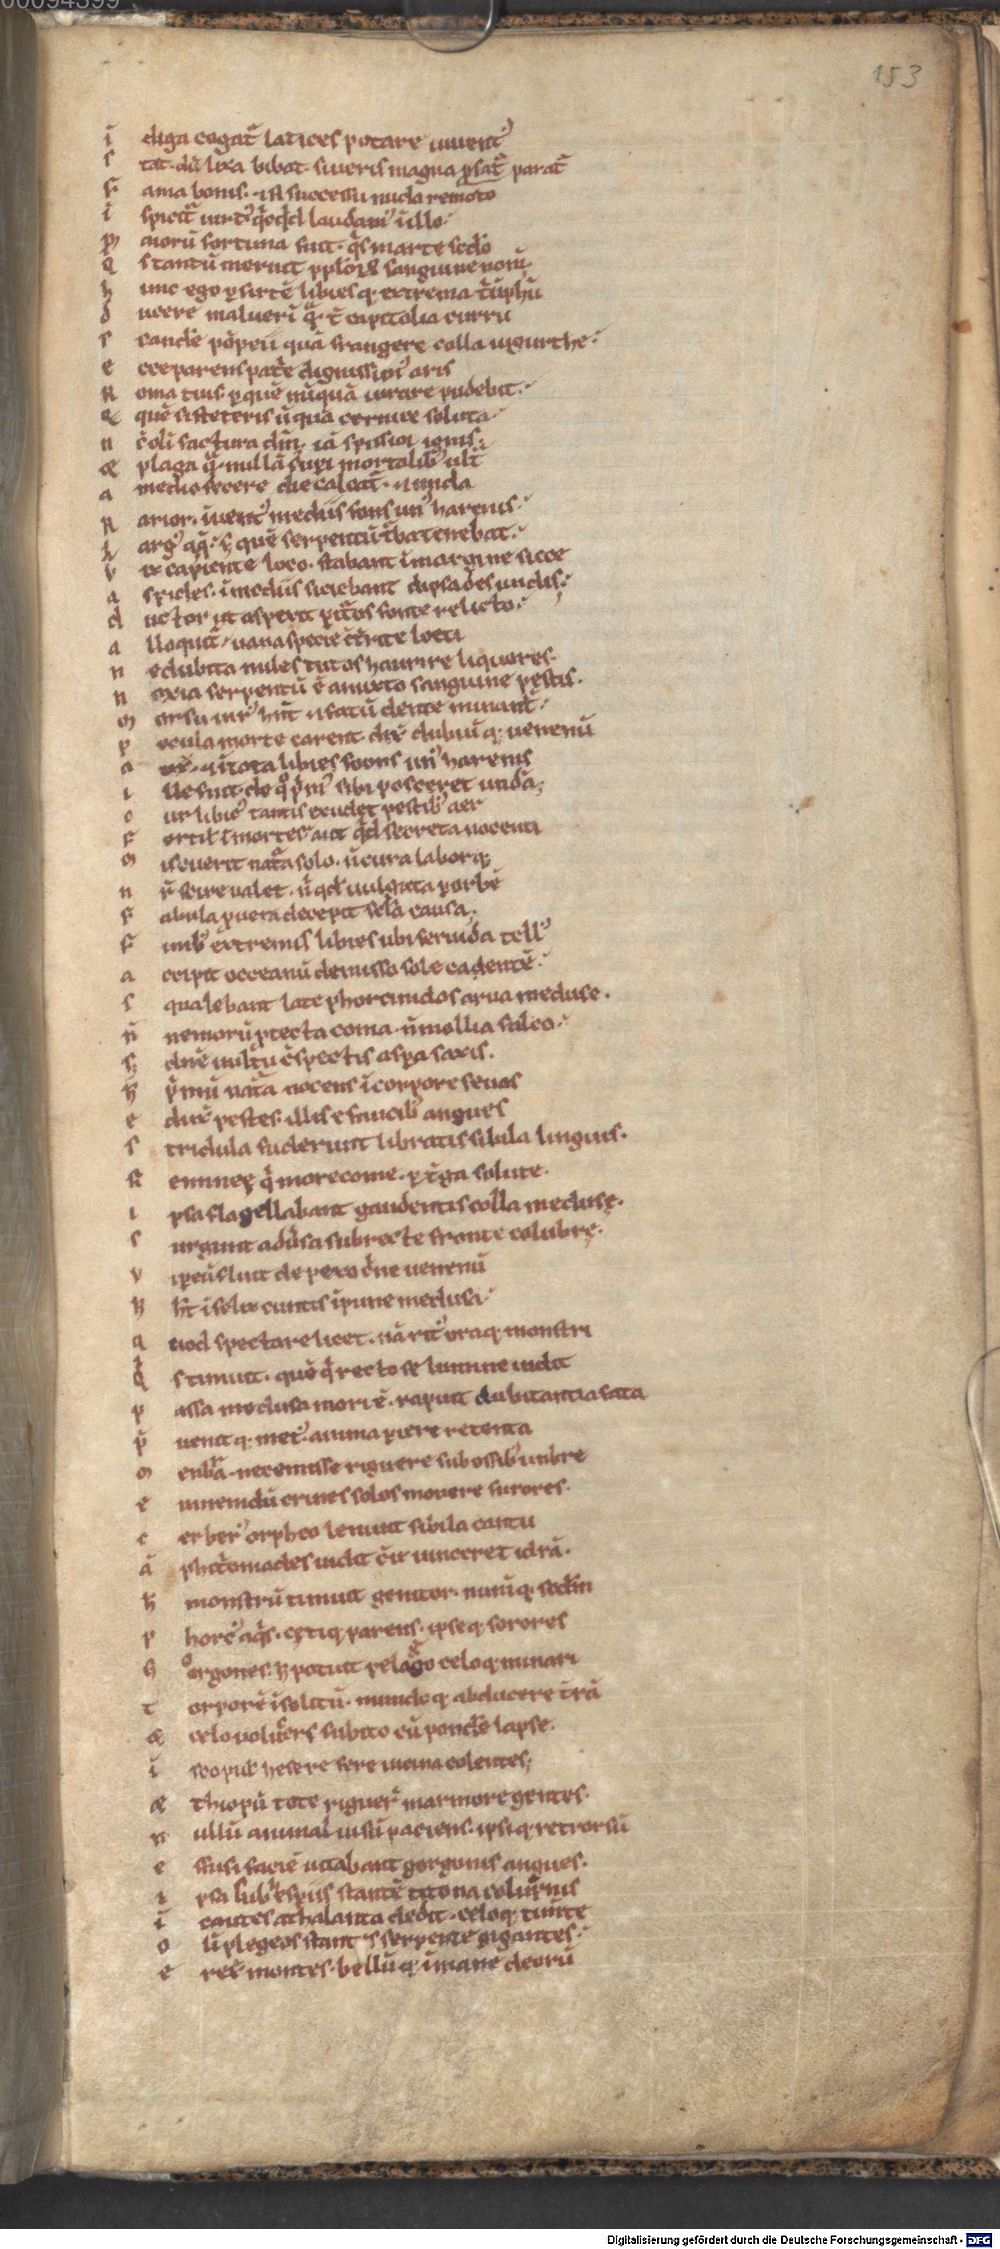 153
i ndiga cogat̄ latices potare iuuent᷒
s tat. dū lixa bibat. si ueris magna ꝑat̄ parat̄
f ama bonis. ⁊ si successu nuda remoto
i spicit᷑ uirt᷒ q̄cq̄d laudam᷒ ī ullo
m aiorū fortuna fuit. q̄s marte scd̄o
q s tantū meruit pplōꝝ sanguine nom̄
h unc ego ꝑ sirtē libiesq; extrema t̄uphū
d ucere maluerī q̄. t̄ capitolia curru
s candē pōpeii quā frangere colla iugurthe
e cce parens patē dignissim᷒ aris
R oma tuis. ꝑ quē nūquā iurare pudebit
& quē si steteris ūquā ceruice soluta
n c̄ oli factura dm̄. iā spissior ignis
& plaga q̄ nullā suꝑi mortalib᷒ ult̄
a medio fecere die calcat̄. ⁊ unda
R arior. īuent᷒ mediis fons un᷒ harenis
l arg᷒ aq̄. s; quē serpentū t̄ba tenebat
v ix capiente loco. stabant ī margine sicce
a spides. ī mediis siciebant dipsades undis
d uctor ut aspexit ꝑit̄os fonte relicto
a lloquit̄. uana specie c̄t̄rite loeti
n e dubita miles tutos haurire liquores
n oxia serpentū ē amixto sanguine pestis
m orsu uir᷒ hn̄t ⁊ fatū dente minant̄
p ocula morte carent dix̄ dubiūq; uenenū
a ux̄. ⁊ ī tota libies fons un᷒ harenis
i lle fuit. de q̊ pm᷒ sibi posceret undā
c ur libic᷒ tantis exudet pestib᷒ aer
f ertił ī mortes aut q̄d secreta nocenti
m iscuerit nat̄a solo. n̄ cura laborq;
n r̄ scire ualet. n̄ qd̄ uulgata ꝑ orbē
f abula ꝑ uera decepit scl̄a causa
f inib᷒ extremis libies ubi feruida tell᷒
a ccipit occeanū demisso sole cadentē
s qualebant late phorcinidos arua meduse
n̄ nemorū ꝑtecta coma. n̄ mollia sulco
s; dn̄e uultu c̄spectis aspa saxis
h p̄mū nat̄a nocens ī corpore seuas
e dux̄ pestes. illis e faucib᷒ angues
s tridula fuderunt libratis sibila linguis
f emineę q̄ more come. ꝑ t̄ga solute
i psa flagellabant gaudentis colla medusę
s urgunt aduīsa subrecte fronte colubrę
v ipeū fluit de pexo c̄ne uenenū
h h̄t īfelix cuntis īpune medusa
q uod spectare licet. nā rict᷒ oraq; monstri
q̄ s timuit. quē q̄ recto se lumine uidit
p assa medusa mori ē. rapuit dubitantia fata
p̄ uenitq; met᷒. anima ꝑiere retenta
m enbra. nec emisse riguere sub ossib᷒ umbre
e umenidū crines solos mouere furores
c erber᷒ orpheo leniuit sibila cantu
ā phit̄oniades uidit c̄ uinceret idrā
h monstrū timuit genitor. numq; scd̄m
p horc᷒ aq̄s. cętiq; parens. ipseq; sorores
g orgones. h̄ potuit pelago celoq; minari
t orporē īsolitū. mundoq; abducere t̄rā
& celo uolūcrs subito cū pond̄e lapse
ī scopul᷒ hesere fere uicina colentes
& thiopū tote riguer̄ marmore gentes
n ullū animal uisū paciens. ipsiq; retrorsū
e ffusi faciē uitabant gorgonis angues
i psa sub esperiis stantē titona colūnis
ī cautes athalanta dedit. celoq; tim̄te
o lī flegeos stant ͛s serpente gigantes
e rex̄ montes. bellūq; īmane deorū
Digitalisierung gefördert durch die Deutsche Forschungsgemeinschaft - DFG